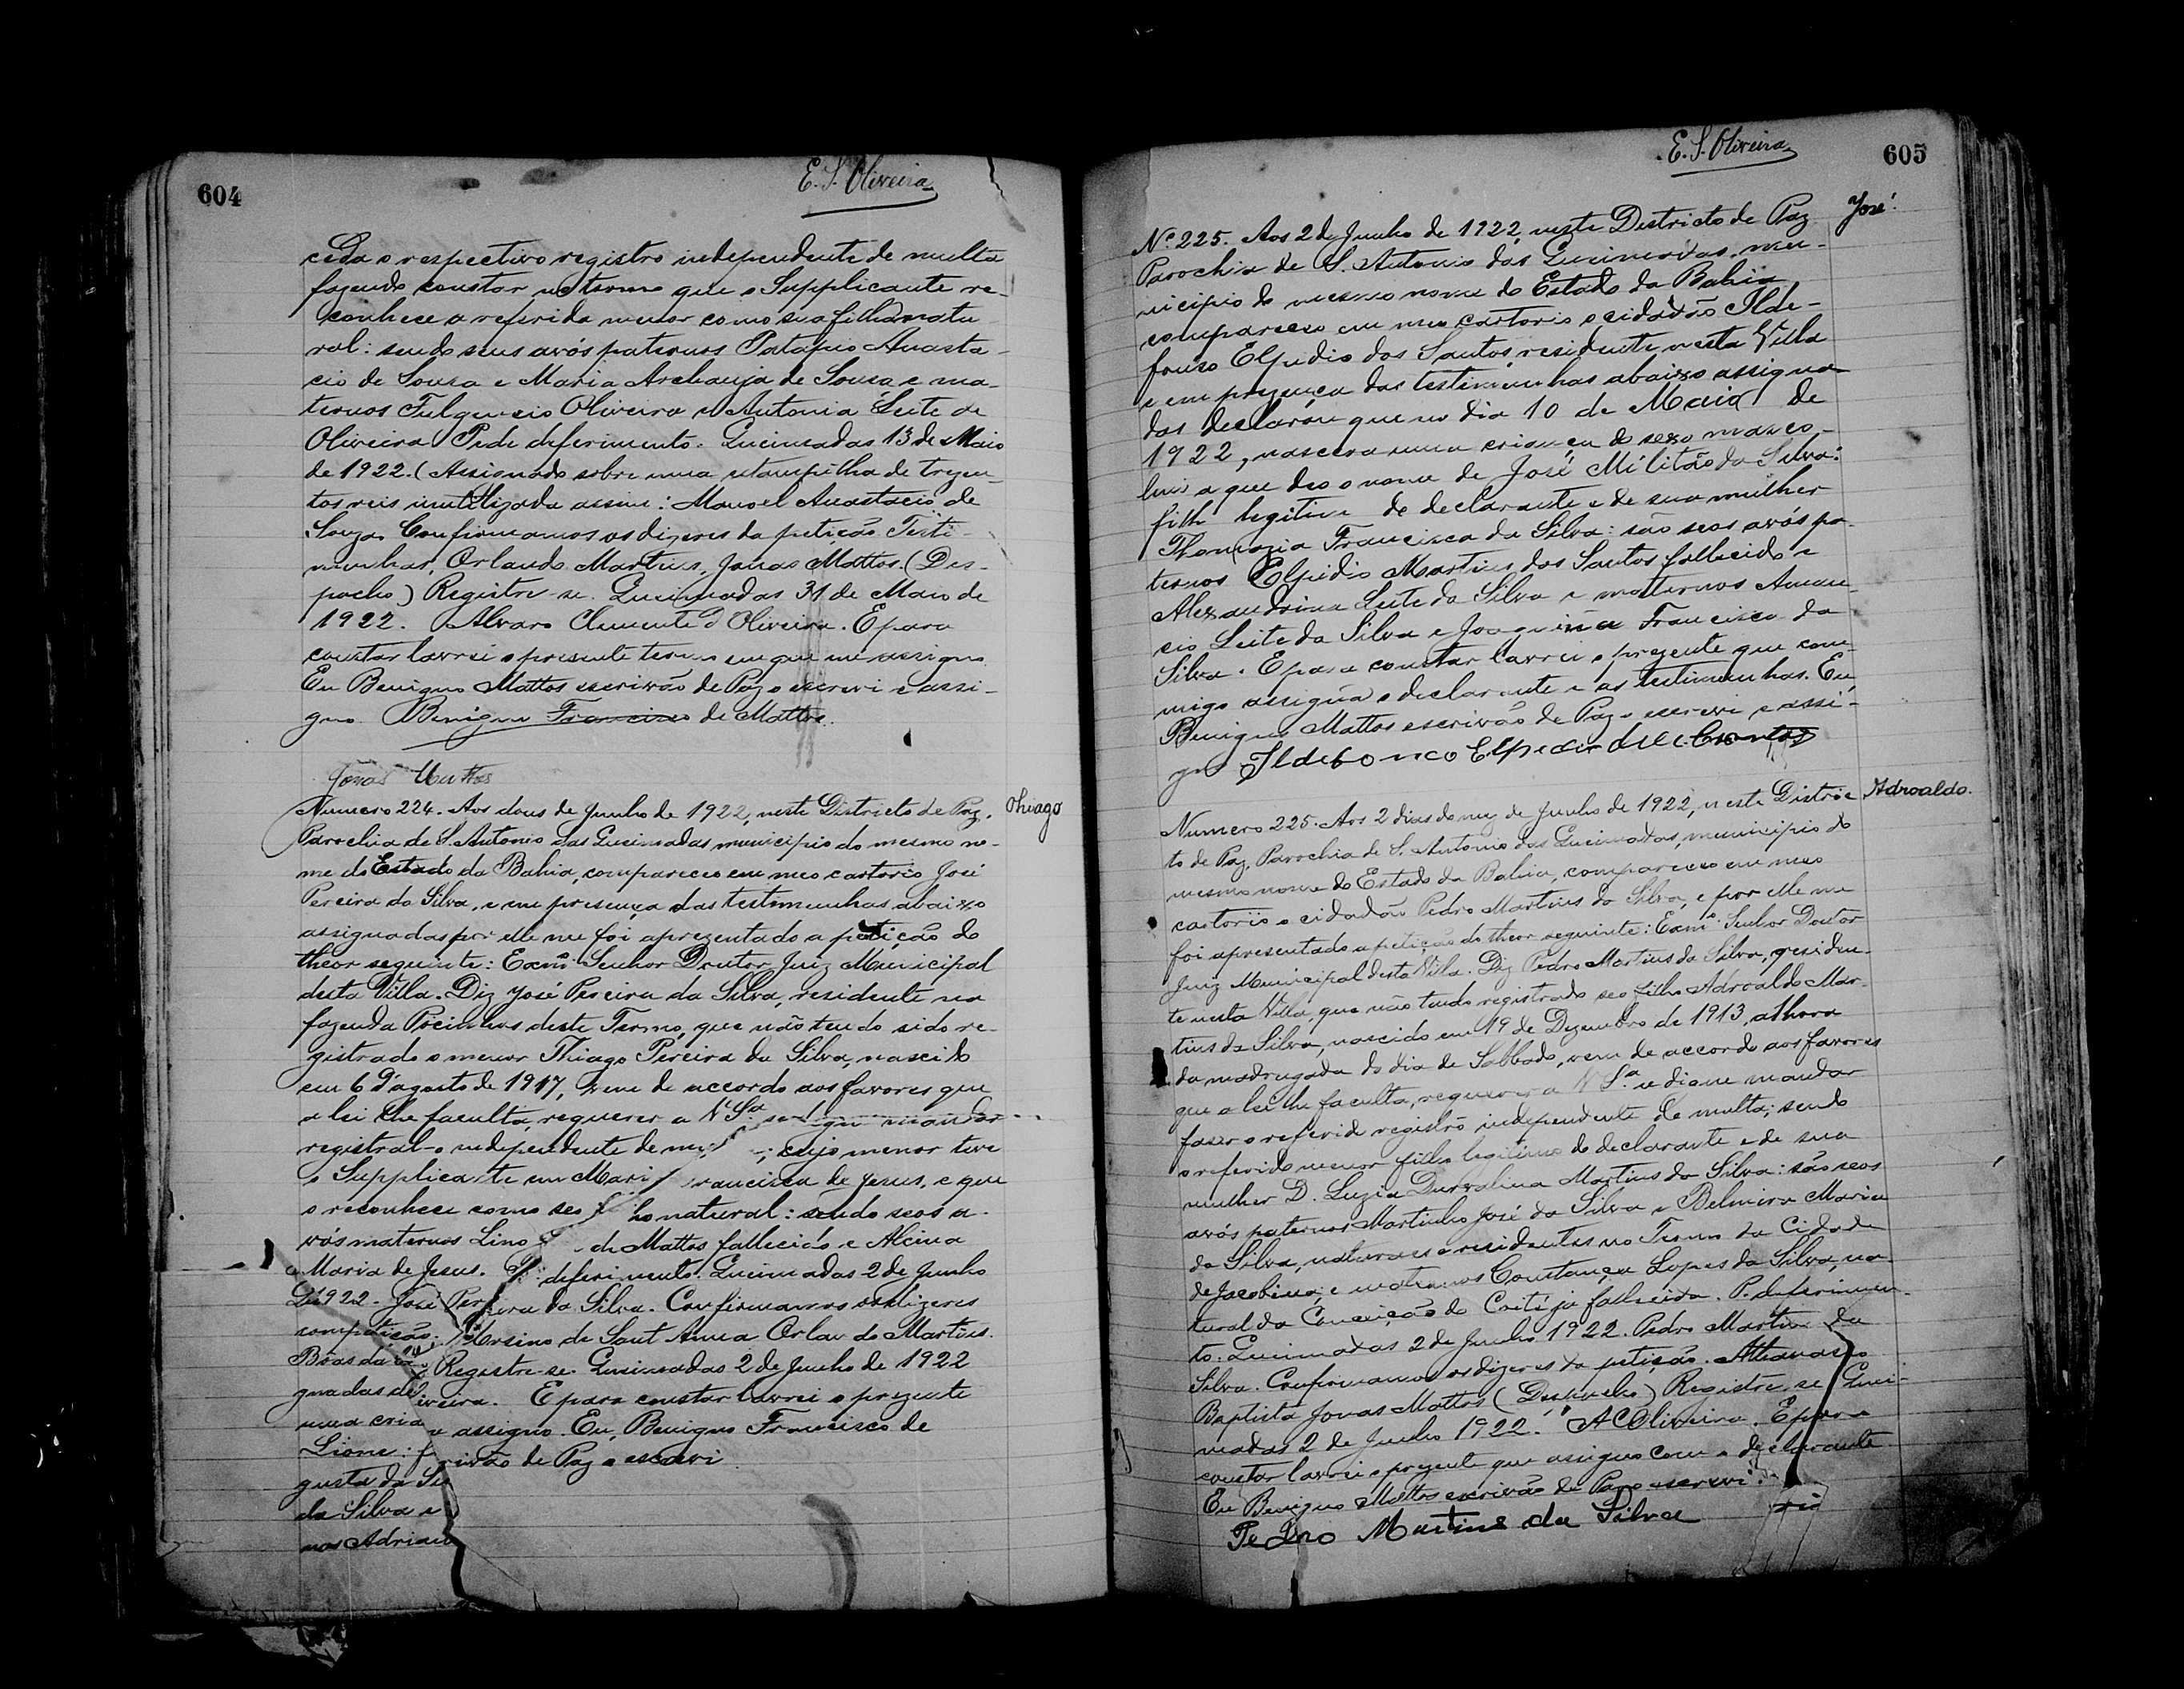 604
E. S. Oliveira
ceda o respectivo registro independente de multa
fazendo constar no termo que o Supplicante re-
conhece a referida menor como sua filha natu
ral: sendo seus avós paternos Patapio Anasta-
cio de Sousa e Maria Archanja de Sousa e ma-
ternos Fulgencio Oliveira e Antonia Leite de
Oliveira. Pede deferimento. Queimadas 13 de Maio
de 1922. (Assignado sobre uma estampilha de trezen-
tos reis inutilizada assim: Manoel Anastacio de
Souza. Confirmamos os dizeres da petição Teste-
munhas, Orlando Martins, Jonas Mattos. (Des-
pacho) Registre-se. Queimadas 31 de Maio de
1922. Alvaro Clemente d'Oliveira. E para
constar lavrei o presente termo em que me assigno.
Eu Benigno Mattos escrivão de Paz o escrevi e assi-
gno. Benigno Francisco de Mattos.
Jonas Mattos
Numero 224. Aos dous de Junho de 1922, neste Districto de Paz,
Thiago
Parochia de S. Antonio das Queimadas municipio do mesmo no-
me do Estado da Bahia, compareceo em meo cartorio José
Pereira da Silva, e em presença das testimunhas abaixo
assignadas por elle me foi aprezentado a petição do
theor seguinte: Exmº Senhor Doutor Juiz Municipal
desta Villa. Diz José Pereira da Silva, residente na
fazenda Pocinhos deste Termo, que não tendo sido re-
gistrado o menor Thiago Pereira da Silva, nascido
em 6 d'agosto de 1917, vem de accordo aos favores que
a lei lhe faculta, requerer a V. Sª mandar
registral-o independente de ; cujo menor teve
o Supplicante em Mari rancisca de Jesus, e que
o reconhece como seo f ho natural: sendo seos a-
vós maternos Lino de Mattos fallecido e Alcina
Maria de Jesus. P. deferimento. Queimadas 2 de Junho
de 1922. José Pereira da Silva. Confirmamos os dizeres
Ursino de Sant'Anna Orlando Martins.
Registre-se. Queimadas 2 de Junho de 1922
iveira. E para constar lavrei o prezente
e assigno. Eu, Benigno Francisco de
rivão de Paz o escrevi
compa
Boas da
gnadas de
uma cria
Lione: f
gusta da Si
da Silva e
nos Adriano
E. S. Oliveira
605
José
Nº 225. Aos 2 de Junho de 1922, neste Districto de Paz
Parochia de S. Antonio das Queimadas, mu-
nicipio do mesmo nome do Estado da Bahia
compareceo em meu cartorio o cidadão Ilde-
fonso Elpidio dos Santos, residente nesta Villa
e em prezença das testimunhas abaixo assigna-
das declarou que no dia 10 de Maio de
1922, nascera uma criança do sexo masco-
lino a que deo o nome de José Militão da Silva:
filho legitimo do declarante e de sua mulher
Thomazia Francisca da Silva: são seos avós pa-
ternos Elpidio Martins dos Santos fallecido e
Alexandrina Leite da Silva e matternos Aman-
cio Leite da Silva e Joaquina Francisca da
Silva. E para constar lavrei o prezente que com-
migo assigna o declarante e as testimunhas. Eu
Benigno Mattos escrivão de Paz o escrevi e assi-
gno Ildefonco Elpedio
Adroaldo.
Numero 225. Aos 2 dias do mez de Junho de 1922, neste Distric
to de Paz, Parochia de S. Antonio das Queimadas, municipio do
mesmo nome do Estado da Bahia, compareceo em meo
cartorio o cidadão Pedro Martins da Silva, e por elle me
foi apresentado a petição do theor seguinte: Exmº Senhor Doutor
Juiz Municipal desta Villa. Diz Pedro Martins da Silva, residen-
te nesta Villa, que não tendo registrado seo filho Adroaldo Mar-
tins da Silva, nascido em 19 de Dezembro de 1913, a 1 hora
da madrugada do dia de Sabbado, vem de accordo aos favores
que a lei lhe faculta, requerer a V. Sª se digne mandar
fazer o referido registro independente de multa; sendo
o referido menor filho legitimo do declarante e de sua
mulher D. Luzia Durvalina Martins da Silva: são seos
avós paternos Martinho José da Silva e Belmira Maria
da Silva, naturaes e residentes no Termo da Cidade
de Jacobina; e maternos Constança Lopes da Silva, na-
tural da Conceição do Coité já fallecida. P. deferimen-
to. Queimadas 2 de Junho 1922. Pedro Martins da
Silva. Confirmamos os dizeres da petição. Athanasio
Baptista Jonas Mattos (Despacho) Registre-se Quei-
madas 2 de Junho 1922. A C Oliveira. E para
constar lavrei o prezente que assigno com o declarante
Eu Benigno Mattos escrivão de Paz o escrevi.
Pedro Martins da Silva